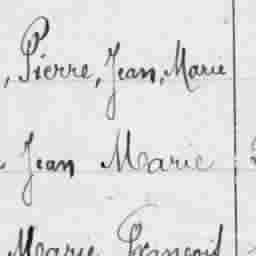 , Pierre, Jean, Marie
Jean Marie
Marie François